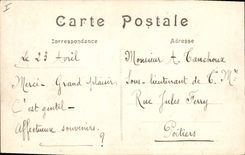 I
Carte Postale
Correspondance
Adresse
Le 23 Avril
Merci - Grand plaisir
C'est gentil -
Affectueux souvenirs.
Monsieur A. Tanchoux
Sous-lieutenant de C.
Rue Jules Ferry
Poitiers